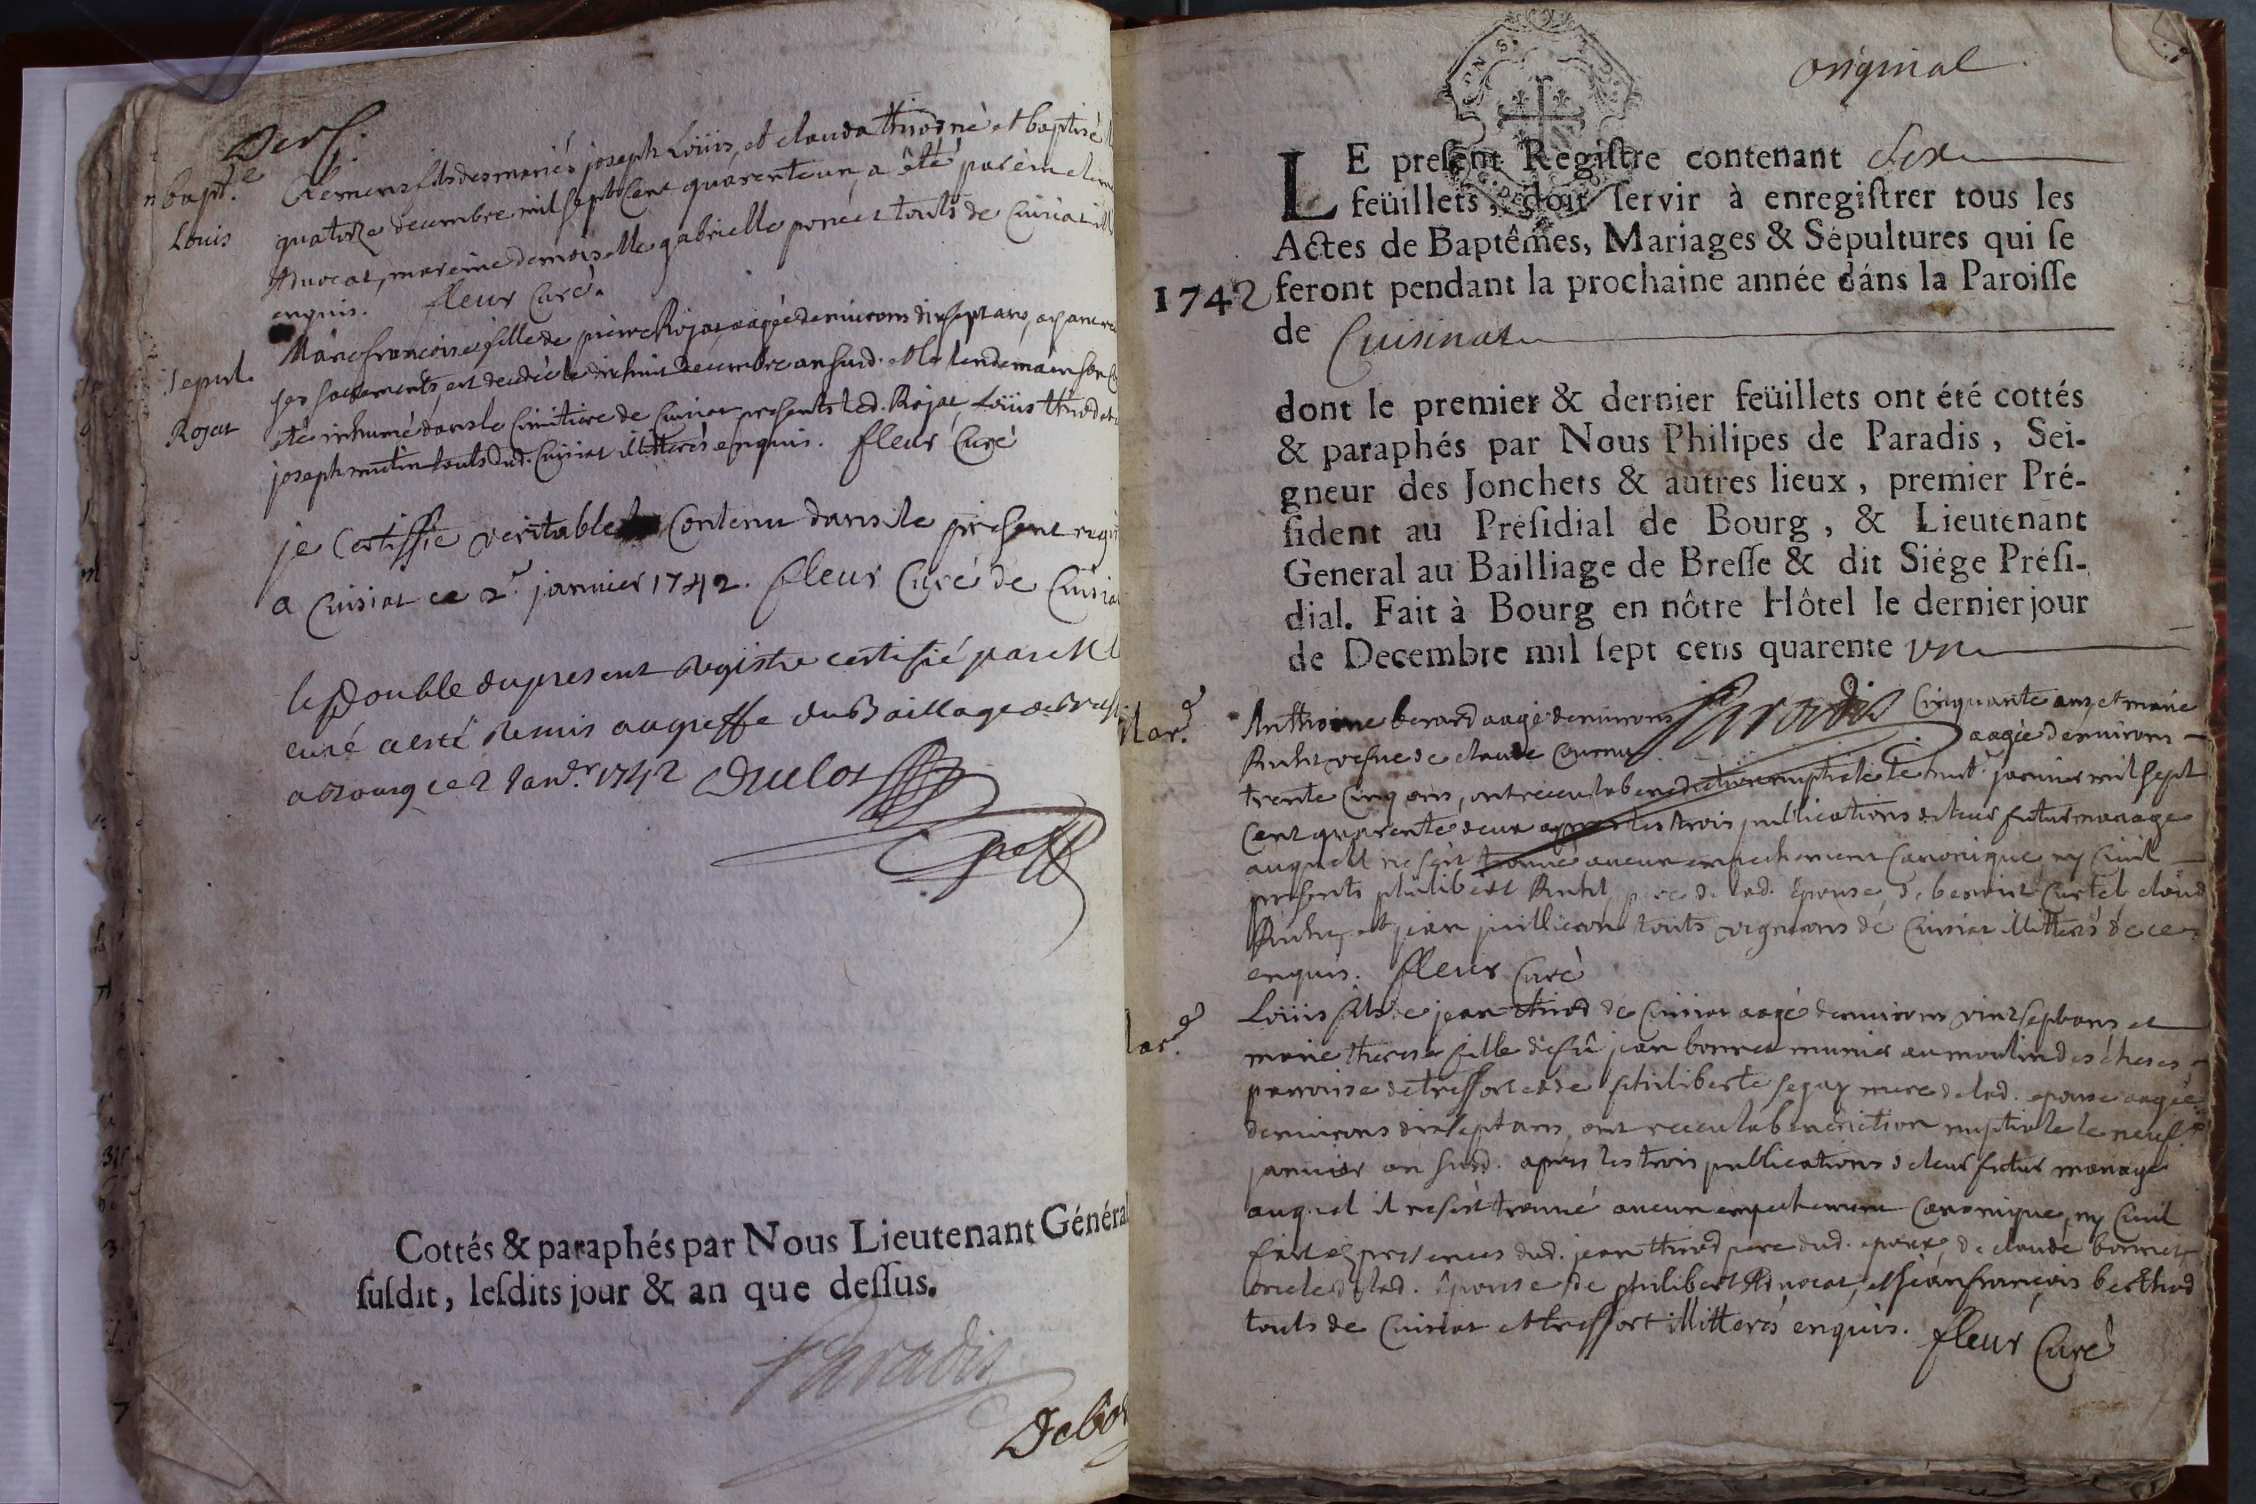 Derf.
bapt.e
Louis
Clemens fils des mariés joseph Loüis, et clauda thiod né et baptisé
quatorze decembre mil sept cent quarenteun, a été parèin
Advocat, mareine demoiselle gabrielle poncet touts de Cuisiat
enquis. fleur Curé.
sepul.
Rojat
Marie françoise fille de pierre Rojat, aagée d'environs dix sept ans, ayant
ses sacrements, est decedée le dix huit decembre an susd. et le lendemain son
eté inhumé dans le Cimitiere de Cuisiat presents led. Rojat, Loüis thiod
joseph mutin touts dud. Cuisiat illitterés enquis. fleur Curé
je Certiffie veritable le Contenu dans le present
a Cuisiat ce 2e janvier 1742. fleur Curé de
le Double du present Registre certifié par
curé a esté Remis au greffe du Bailliage de
a Bourg ce 2 Janr 1742 Duclos
Cottés & paraphés par Nous Lieutenant Généra
susdit, lesdits jour & an que dessus.
Paradis
original
LE present Registre contenant six
feüillets, doit servir à enregistrer tous les
Actes de Baptêmes, Mariages & Sépultures qui se
1742 feront pendant la prochaine année dáns la Paroisse
de Cuisinat
dont le premier & dernier feüillets ont été cottés
& paraphés par Nous Philipes de Paradis, Sei-
gneur des Jonchets & autres lieux, premier Pré-
sident au Présidial de Bourg, & Lieutenant
General au Bailliage de Bresse & dit Siége Prési-
dial. Fait à Bourg en nôtre Hôtel le dernier jour
de Decembre mil sept cens quarente un
Paradis
Mar.e
Anthoine berard aagé d'environs Cinquante ans, et marie
vefve de claude aagée d'environs
trente Cinq ans, ont receu la benediction nuptiale le huit janvier mil sept
Cent quarente deux apres les trois publications de leur futur mariage
auquel il ne s'est trouvé aucun empechement Canonique, ny Civil
presents philibert père de lad. épouse, de benoit Curtel, claude
et jean juillieron touts vignerons de Cuisiat illitterés de ce
enquis. fleur Curé
Mar.e
Loüis fils de jean thiod de Cuisiat aagé d'environs vint sept ans et
marie therese fille de fû jean bonnet munier au moulin des
parroisse de treffort et de philiberte mere de lad. epouse aagée
d'environs dix sept ans, ont receu la benediction nuptiale le neuf
janvier an susd. apres les trois publications de leur futur mariage
auquel il ne s'est trouvé aucun empechement Canonique, ny Civil
fait ez presences dud. jean thiod pere dud. epoux, de claude bonnet
oncle de lad. épouse, de philibert Advocat, et jean françois berthod
touts de Cuisiat et treffort illitterés enquis. fleur Curé